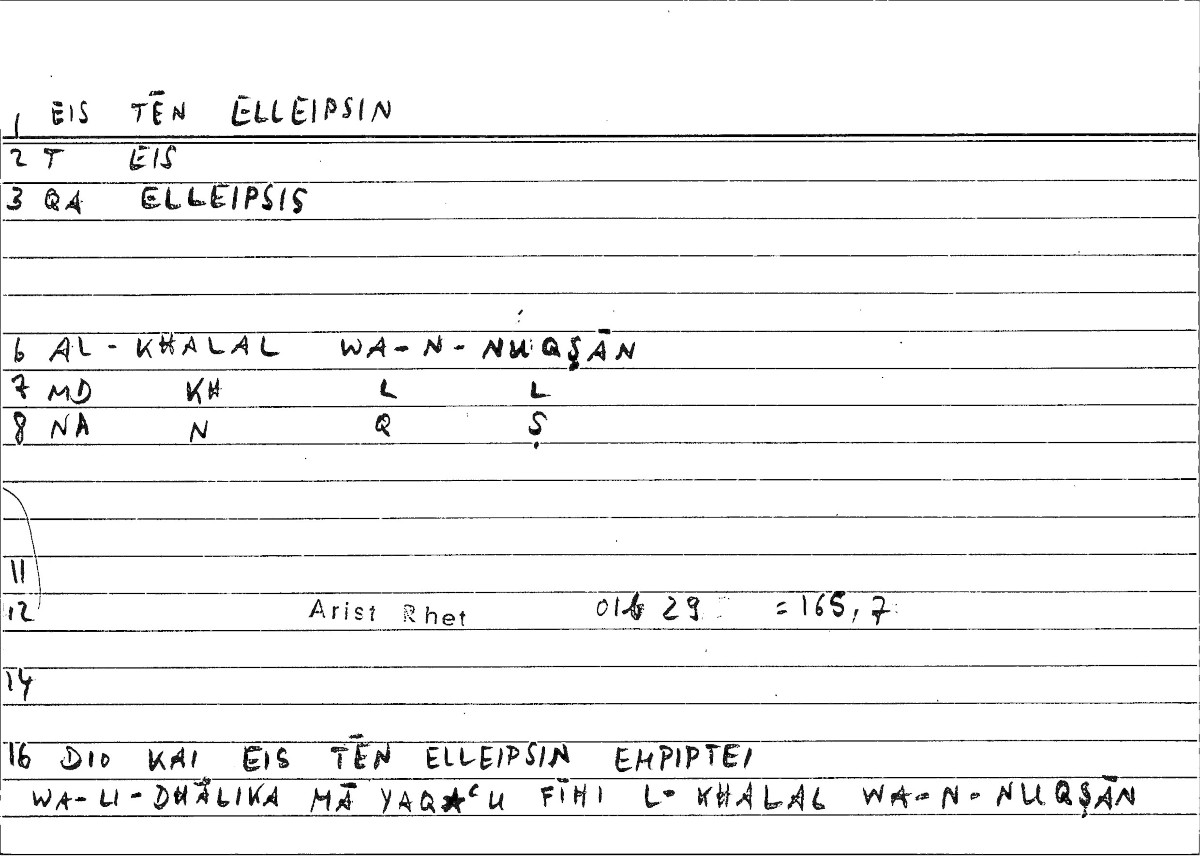 1 EIS TĒN ELLEIPSIN
2 T EIS
3 QA ELLEIPSIS
6 AL-KHALAL WA-N-NUQṢĀN
7 MD KH L L
8 NA N Q Ṣ
11
12 Arist Rhet 29 =165,7
14
16 DIO KAI EIS TĒN ELLEIPSIN EMPIPTEI
WA-LI-DHĀLIKA MĀ YAQAʿU FĪHI L-KHALAL WA-N-NUQṢĀN